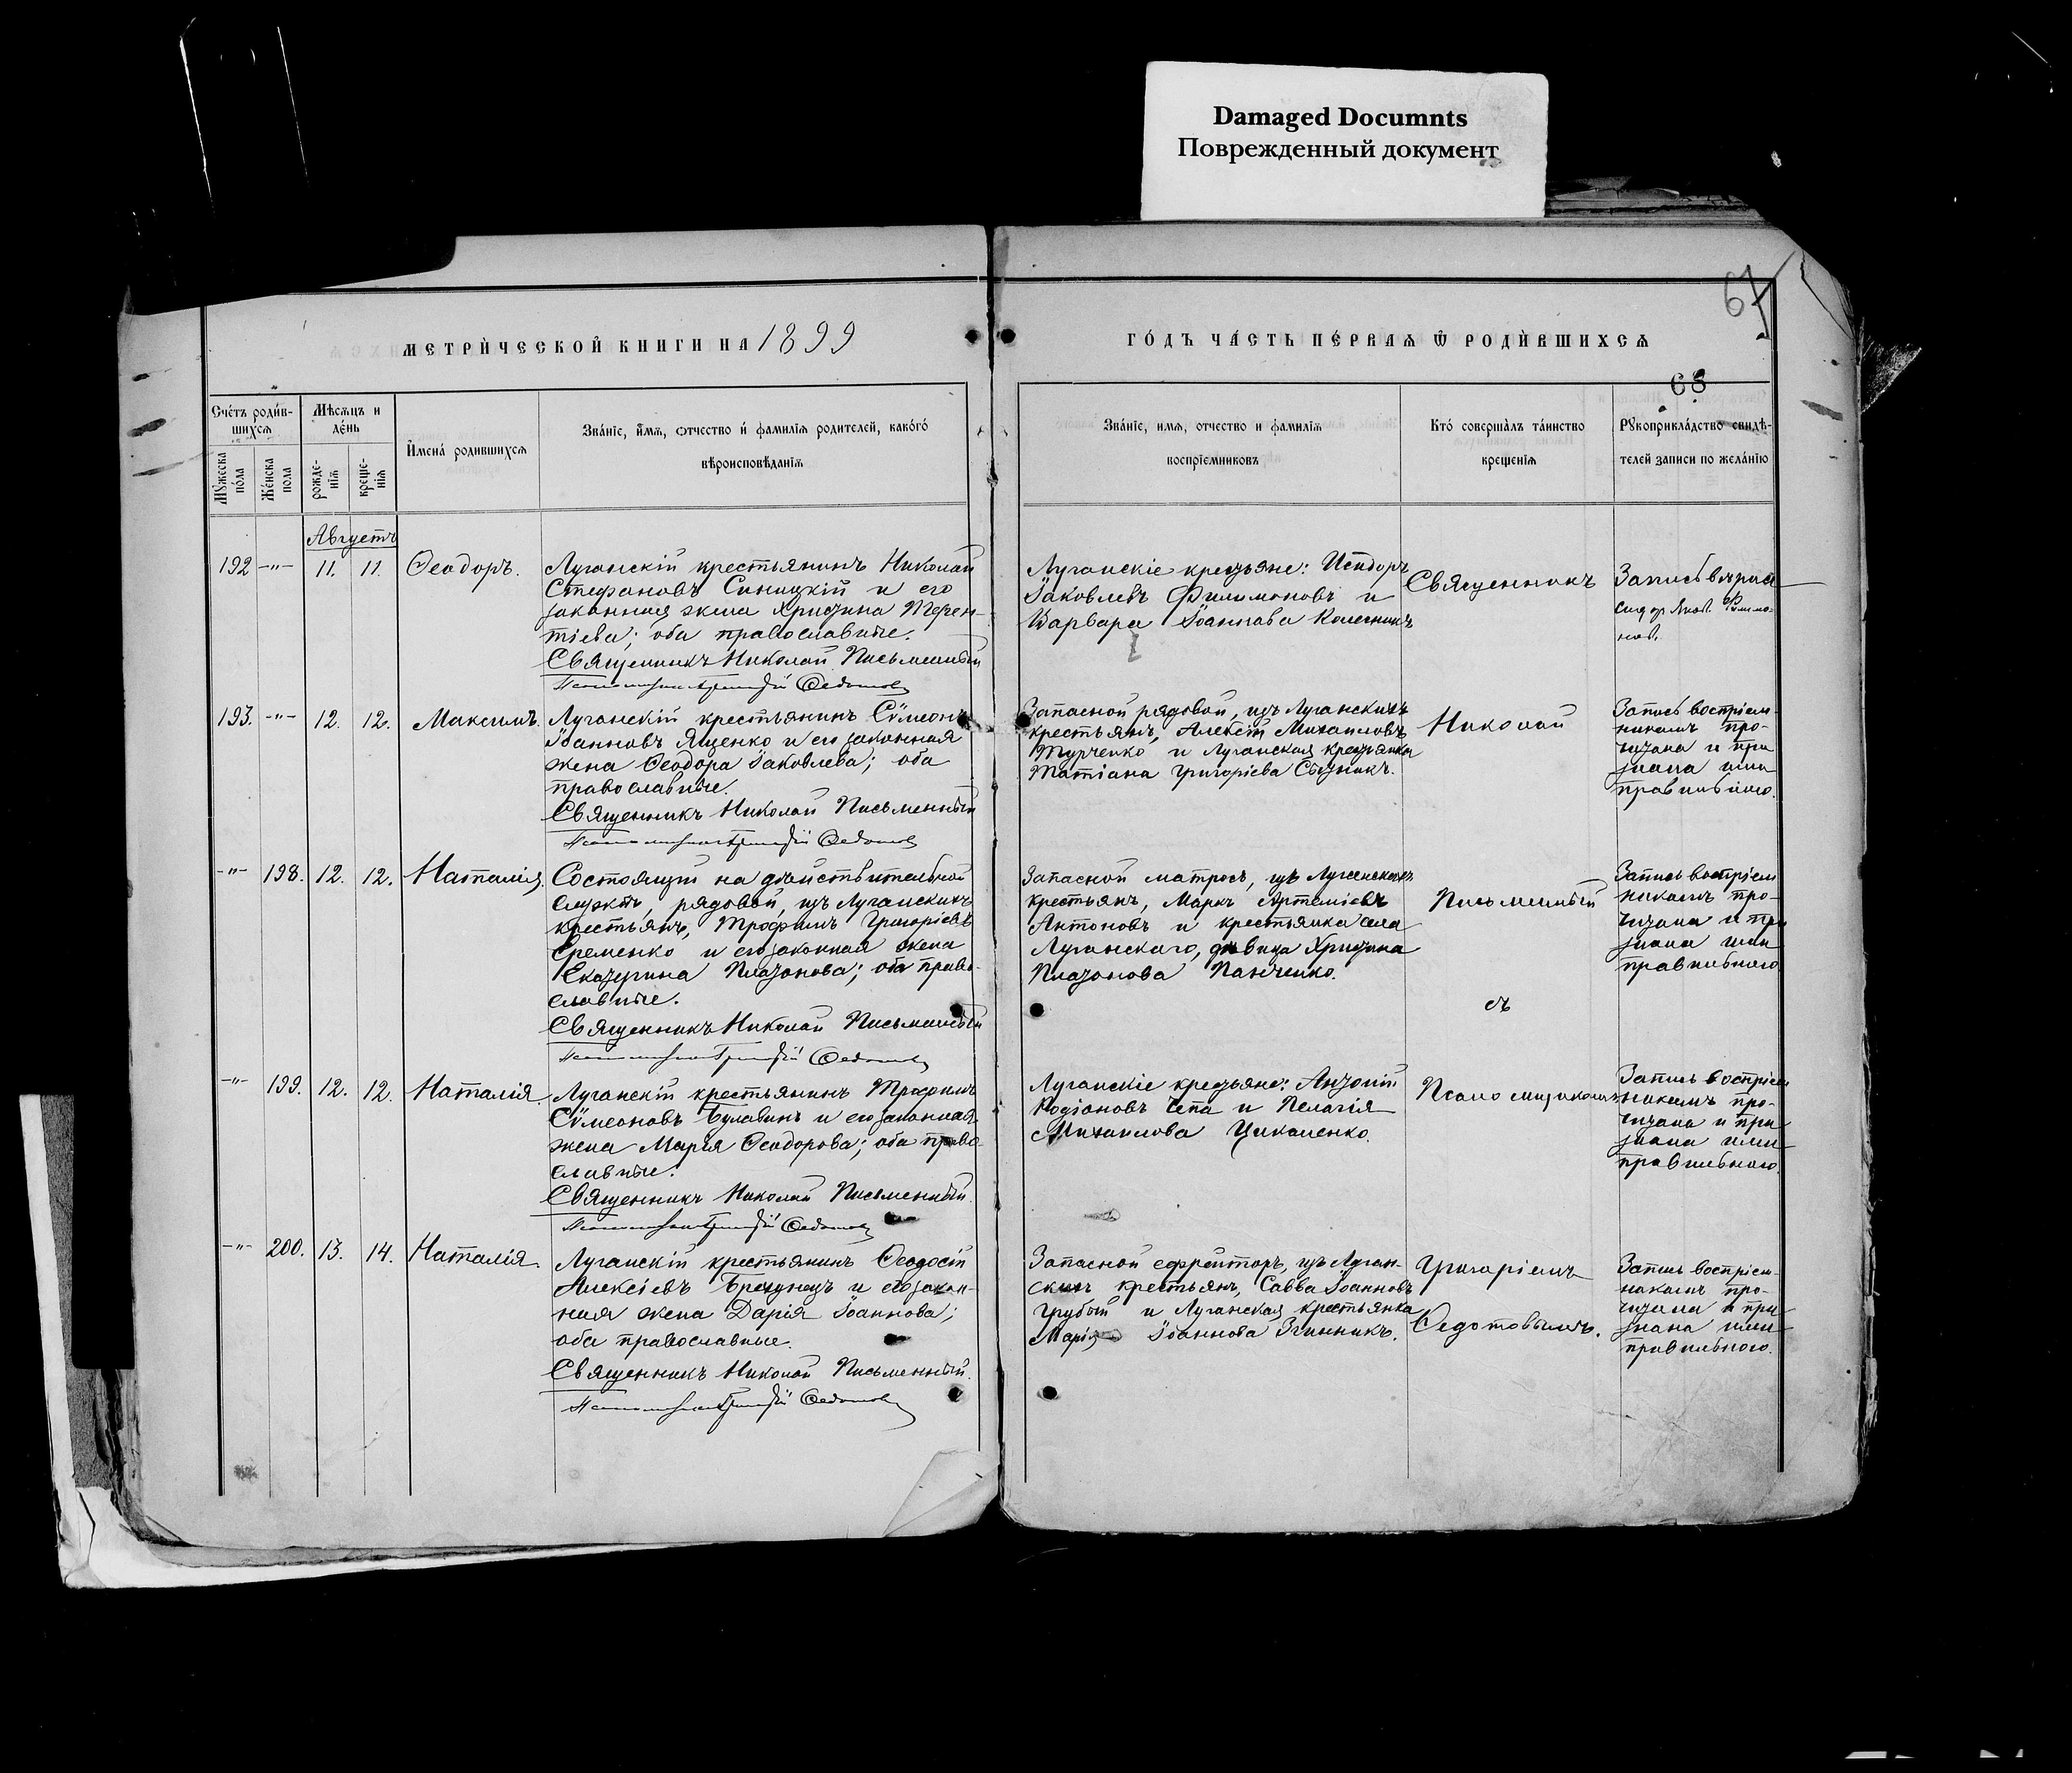 Damaged Documnts
Поврежденный документ
67
МЕТРИ́ЧЕСКОЙ КНИГИ НА 1899
ГО́ДЪ ЧА́СТЬ ПЕ́РВАѦ Ѿ РОДИ́ВШИХСѦ
68
Сче́тъ роди́в-
шихсѧ
Мꙋжеска по́ла
Же́нска пола
Мѣсѧцъ и
де́нь
рожде-
нїѧ
креще-
нїѧ
Имена́ родившихсѧ
Зва́нїе, имѧ, отчество и фамилїѧ родителей, како́го
вѣроисповѣ́данїѧ
Зва́нїе, имѧ, отчество и фамилїѧ
воспрїемниковъ
Кто́ соверша́лъ та́инство
крещенїѧ
Рꙋкоприкла́дство свидѣ-
телей записи по жела́нїю
Августъ
192 -"- 11. 11. Ѳеодоръ.
Луганскій крестьянинъ Николай
Стефановъ Синицкій и его
законная жена Христина Терен-
тіева; оба православные.
Священникъ Николай Письменный
Ѳедотовъ
Луганскіе крестьяне: Исидоръ
Іаковлевъ Филимоновъ и
Варвара Іоаннова Колесникъ
Священникъ
193. -"- 12. 12. Максимъ.
Луганскій крестьянинъ Сѵмеонъ
Іоанновъ Яценко и его законная
жена Ѳеодора Іаковлева; оба
православные.
Священникъ Николай Письменный
Ѳедотовъ
Запасной рядовой, изъ Луганскихъ
крестьянъ, Алексій Михаиловъ
Турченко и Луганская крестьянка
Татіана Григоріева
Николай
Запись воспріем-
никамъ про-
читана и при
знана ими
правильною.
-"- 198. 12. 12. Наталія.
Состоящій на дѣйствительной
службѣ, рядовой, изъ Луганскихъ
крестьянъ, Трофимъ Григоріевъ
Еременко и его законная жена
Екатерина Платонова; оба право-
славные.
Священникъ Николай Письменный
Ѳедотовъ
Запасной матросъ, изъ Луганскихъ
крестьянъ, Маркъ Артеміевъ
Антоновъ и крестьянка села
Луганскаго, дѣвица Христина
Платонова Панченко.
Письменный
съ
Запись воспріем
никамъ про-
читана и при
знана ими
правильною
-"- 199. 12. 12. Наталія.
Луганскій крестьянинъ Трофимъ
Сѵмеоновъ Булавинъ и его законная
жена Марія Ѳеодорова; оба право-
славные.
Священникъ Николай Письменный.
Ѳедотовъ
Луганскіе крестьяне: Антоній
Родіоновъ Чепа и Пелагія
Михаилова Цикаленко.
Псаломщикомъ
Запись воспріем
никамъ про-
читана и при
знана ими
правильною.
-"- 200. 13. 14. Наталія.
Луганскій крестьянинъ Ѳеодосій
Алексіевъ Брехунецъ и его закон-
ная жена Дарія Іоаннова;
оба православные.
Священникъ Николай Письменный.
Ѳедотовъ
Запасной ефрейторъ, изъ Луган-
скихъ крестьянъ, Савва Іоанновъ
Грубый и Луганская крестьянка
Марія Іоаннова Згинникъ.
Григоріемъ
Ѳедотовымъ.
Запись воспріем-
никамъ про-
читана и при
знана ими
правильною.